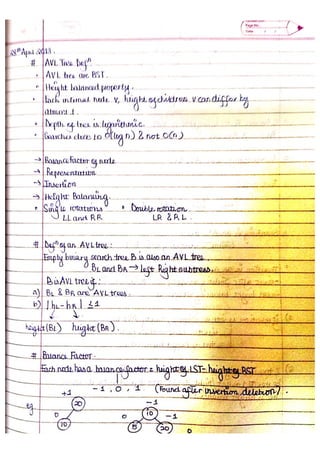 Page No.
Date
28th April 2013.
# AVL Tree Defn
• AVL trees are BST.
• Height balanced property.
• Each internal node v, height of children v can differ by
atmost 1.
• Depth of tree is logarithmic.
• Searches close to O(log n) & not O(n)
→ Balance factor of node
→ Representation
→ Insertion
→ Height Balancing.
• Single rotations • Double rotation
LL and RR LR & RL
# Defn of an AVL tree:
Empty binary search tree B is also an AVL tree
BL and BR → left Right subtrees.
B is AVL tree if:
a) BL & BR are AVL trees.
b) |hL-hR| ≤1
height(BL) height(BR).
# Balance Factor.
Each node has a balance factor = height of LST-height of RST
-1, 0, 1 (Found after insertion, deletion).
+1 -1
eg 20 10
0 0 -1
10 5 20 0